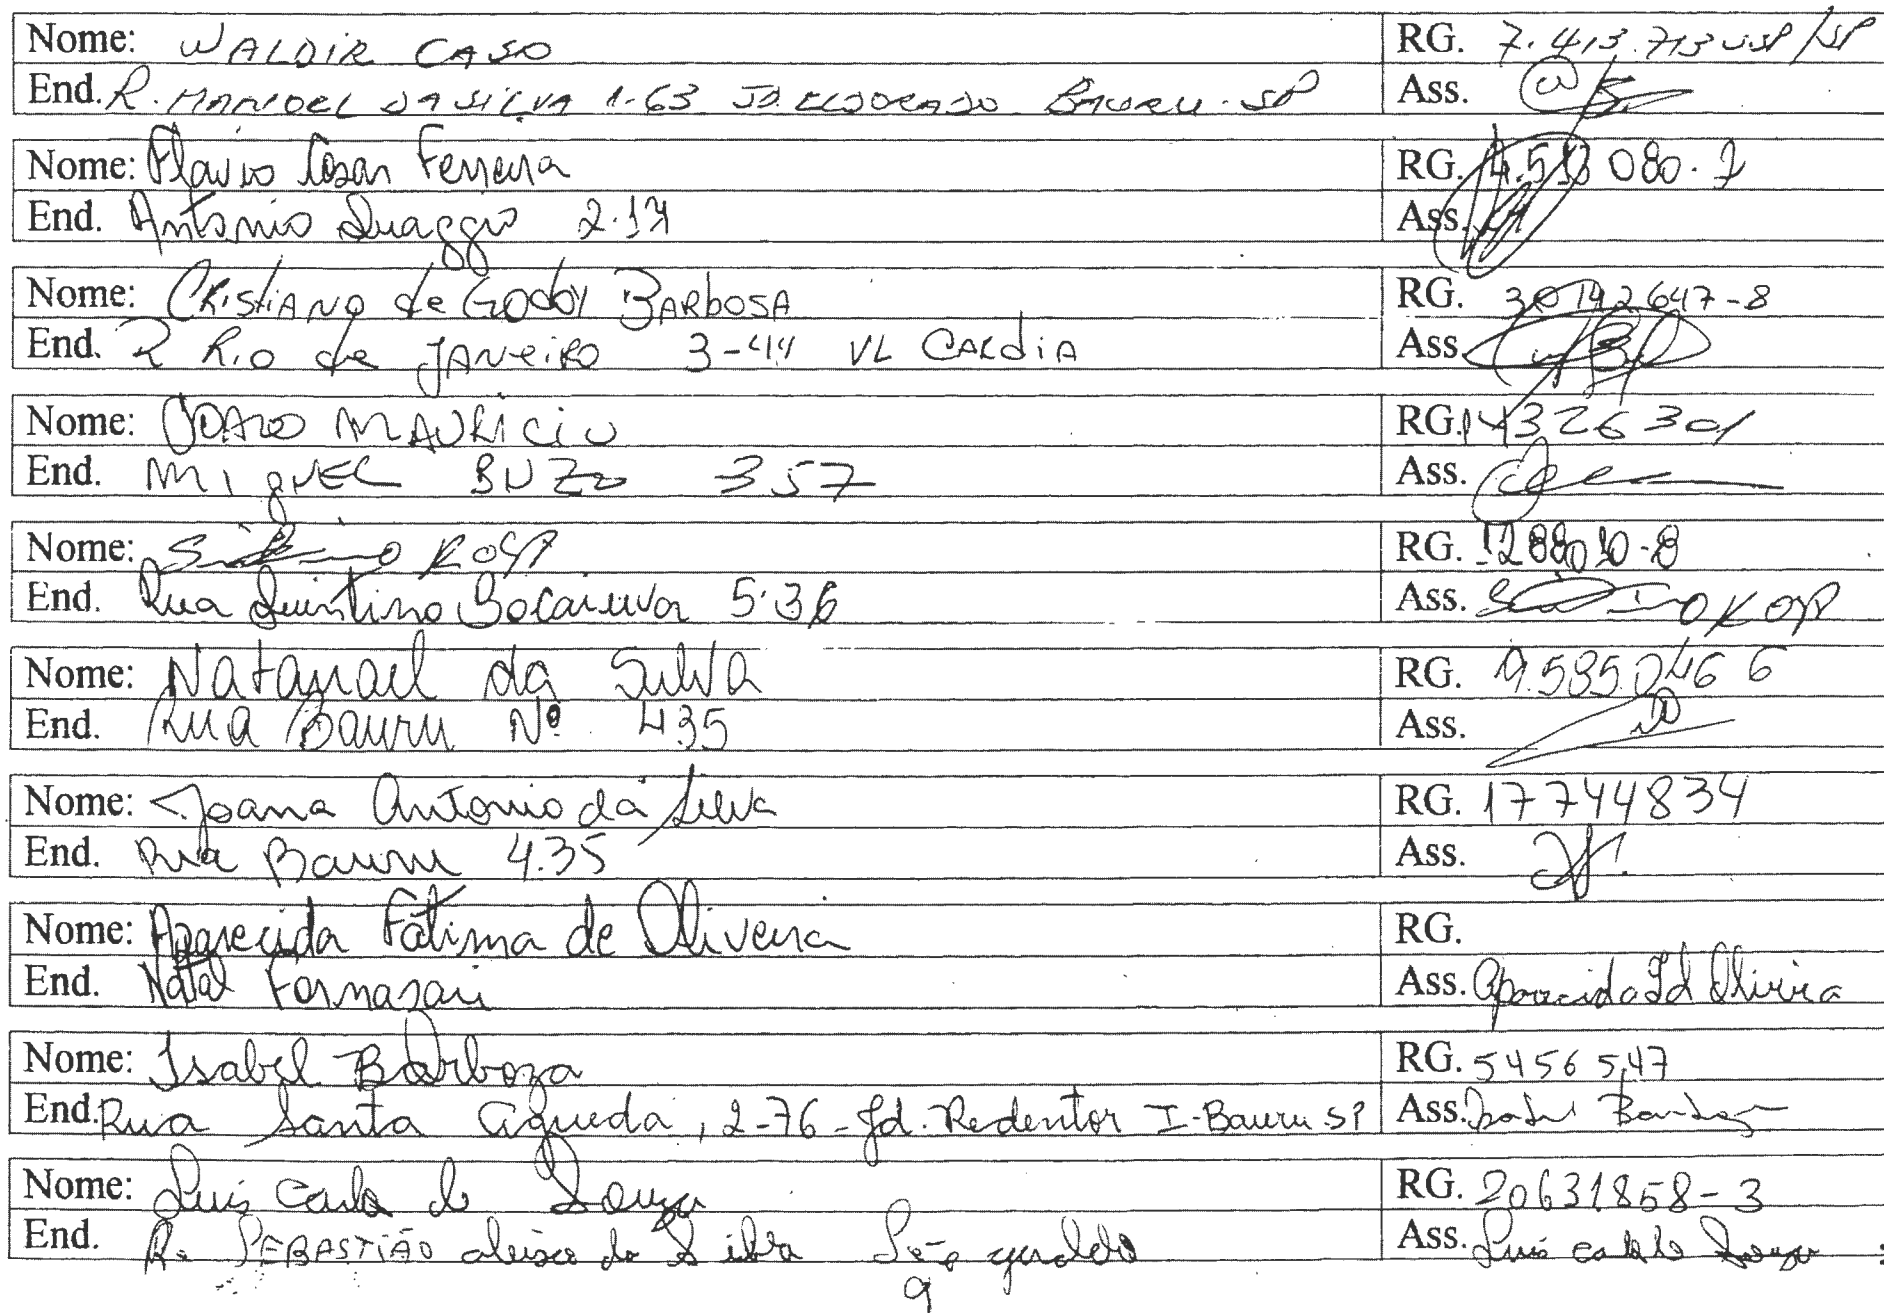 Nome: WALDIR CASO RG. 7.413.713 SSP/SP
End. R. MANOEL DA SILVA 1-63 JD. ELDORADO BAURU-SP Ass.
Nome: Flavio Cesar Ferreira RG. 14.513 080.7
End. Antonio 2-17 Ass.
Nome: CRISTIANO de GODOY BARBOSA RG. 30142647-8
End. R RIO de JANEIRO 3-44 VL CARDIA Ass.
Nome: JOAO MAURICIO RG. 14326301
End. MIGUEL BUZO 357 Ass.
Nome: RG.
End. Rua Quintino Bocaiuva 5-36 Ass.
Nome: Natanael da Silva RG. 9.585.046 6
End. Rua Bauru Nº 435 Ass.
Nome: Joana Antonio da Silva RG. 17744834
End. Rua Bauru 4.35 Ass.
Nome: Aparecida Fatima de Oliveira RG.
End. Natal Fornasari Ass. Aparecida F d Oliveira
Nome: Isabel Barboza RG. 5456547
End. Rua Santa Agueda, 2-76 - Jd. Redentor I-Bauru-SP Ass. Isabel Barboza
Nome: Luis Carlos de Souza RG. 20631858-3
End. R. SEBASTIÃO aleixo da Silva São geraldo Ass. Luis Carlos de Souza
9